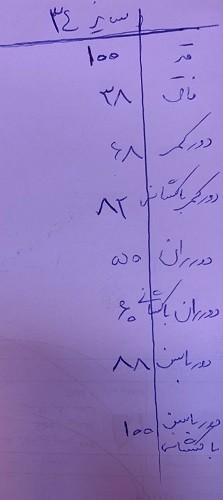 سایز ۳٤
قد ۱۰۰
فاق ۳۸
دور کمر ۶۸
دور کمر با کشسانی ۸۲
دور ران ۵۵
دور ران با کشسانی ۶۰
دور باسن ۸۸
دور باسن
با کشسانی ۱۰۰